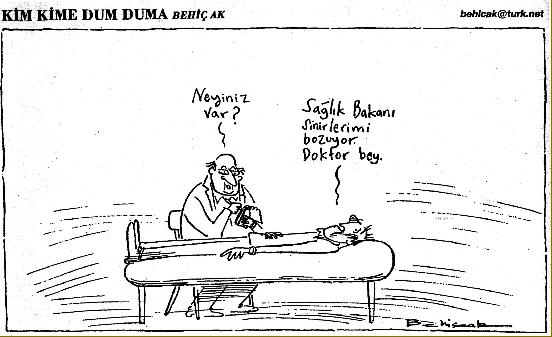 KİM KİME DUM DUMA BEHİÇ AK
behicak@turk.net
Neyiniz
var?
Sağlık Bakanı
sinirlerimi
bozuyor
Doktor bey.
Behiçak